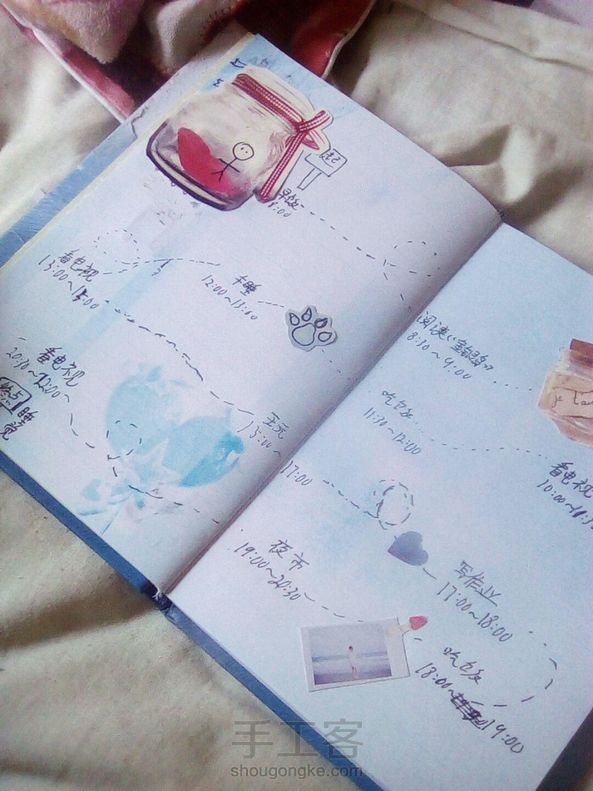 起
8:00
午睡
12:00~13:00
看电视
13:00~15:00
看电视
20:30~22:00
终点
睡觉
15:00~
17:00
阅读
8:30~9:00
看电视
吃饭
11:30~12:00
写作业
17:00~18:00
夜市
19:00~20:30
吃饭
18:00~19:00
手工客
shougongke.com